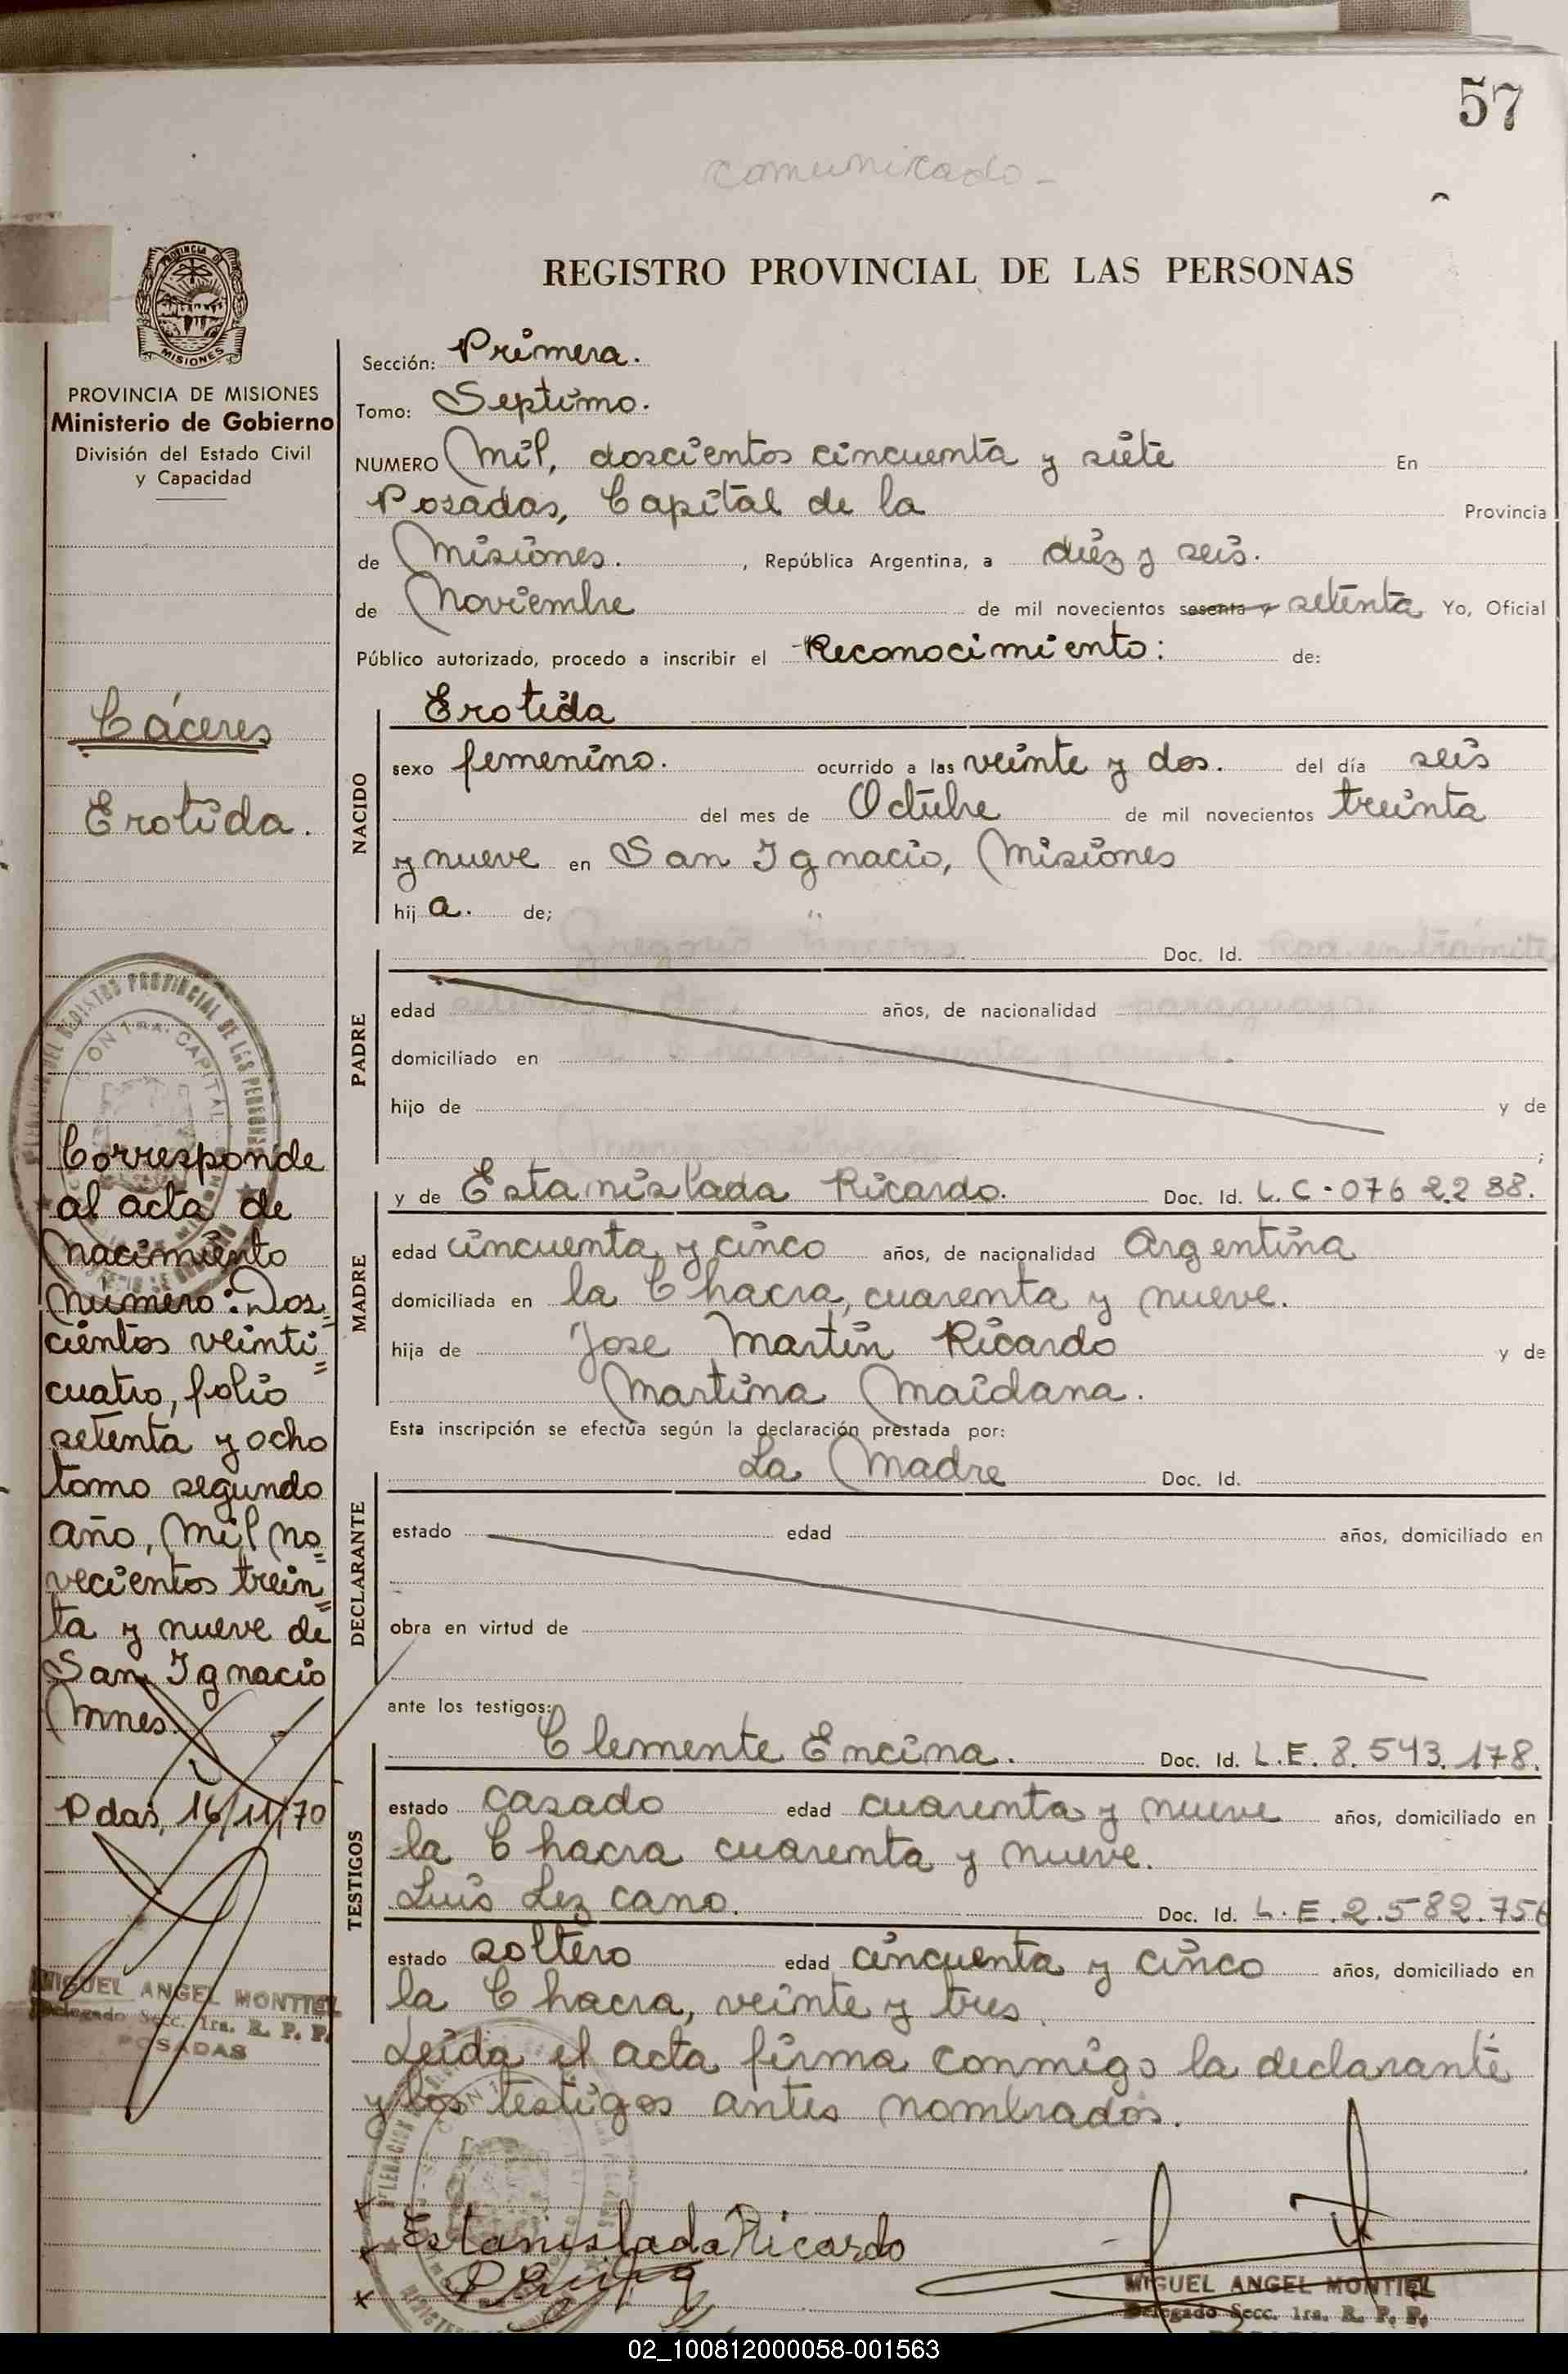 57
comunicado -
REGISTRO PROVINCIAL DE LAS PERSONAS
PROVINCIA DE
MISIONES
PROVINCIA DE MISIONES
Ministerio de Gobierno
División del Estado Civil
y Capacidad
Cáceres
Erotida.
Corresponde
al acta de
nacimiento
número: Dos=
cientos veinti=
cuatro, folio
setenta y ocho
tomo segundo
año, mil no=
vecientos trein=
ta y nueve de
San Ignacio
Mnes.
Pdas, 16/11/70
MIGUEL ANGEL MONTIEL
Delegado Secc. 1ra. R. P. P.
POSADAS
Sección: Primera.
Tomo: Septimo.
NUMERO Mil, doscientos cincuenta y siete En
Posadas, Capital de la Provincia
de Misiones. , República Argentina, a diez y seis.
de Noviembre de mil novecientos sesenta y setenta Yo, Oficial
Público autorizado, procedo a inscribir el Reconocimiento: de:
NACIDO
Erotida
sexo femenino. ocurrido a las veinte y dos. del día seis
del mes de Octubre de mil novecientos treinta
y nueve en San Ignacio, Misiones
hij a. de;
PADRE
Doc. Id.
edad años, de nacionalidad
domiciliado en
hijo de y de
;
MADRE
y de Estanislada Ricardo. Doc. Id. L.C-0762288.
edad cincuenta y cinco años, de nacionalidad Argentina
domiciliada en la Chacra, cuarenta y nueve.
hija de Jose Martin Ricardo y de
Martina Maidana.
Esta inscripción se efectúa según la declaración prestada por:
DECLARANTE
La Madre Doc. Id.
estado edad años, domiciliado en
obra en virtud de
ante los testigos:
TESTIGOS
Clemente Encina. Doc. Id. L.E. 8.543.178.
estado casado edad cuarenta y nueve años, domiciliado en
la Chacra cuarenta y nueve.
Luis Lezcano. Doc. Id. L.E.2.582.756
estado soltero edad cincuenta y cinco años, domiciliado en
la Chacra, veinte y tres.
Leida el acta firma conmigo la declarante
y los testigos antes nombrados.
Estanislada Ricardo
MIGUEL ANGEL MONTIEL
Delegado Secc. 1ra. R. P. P.
02_100812000058-001563